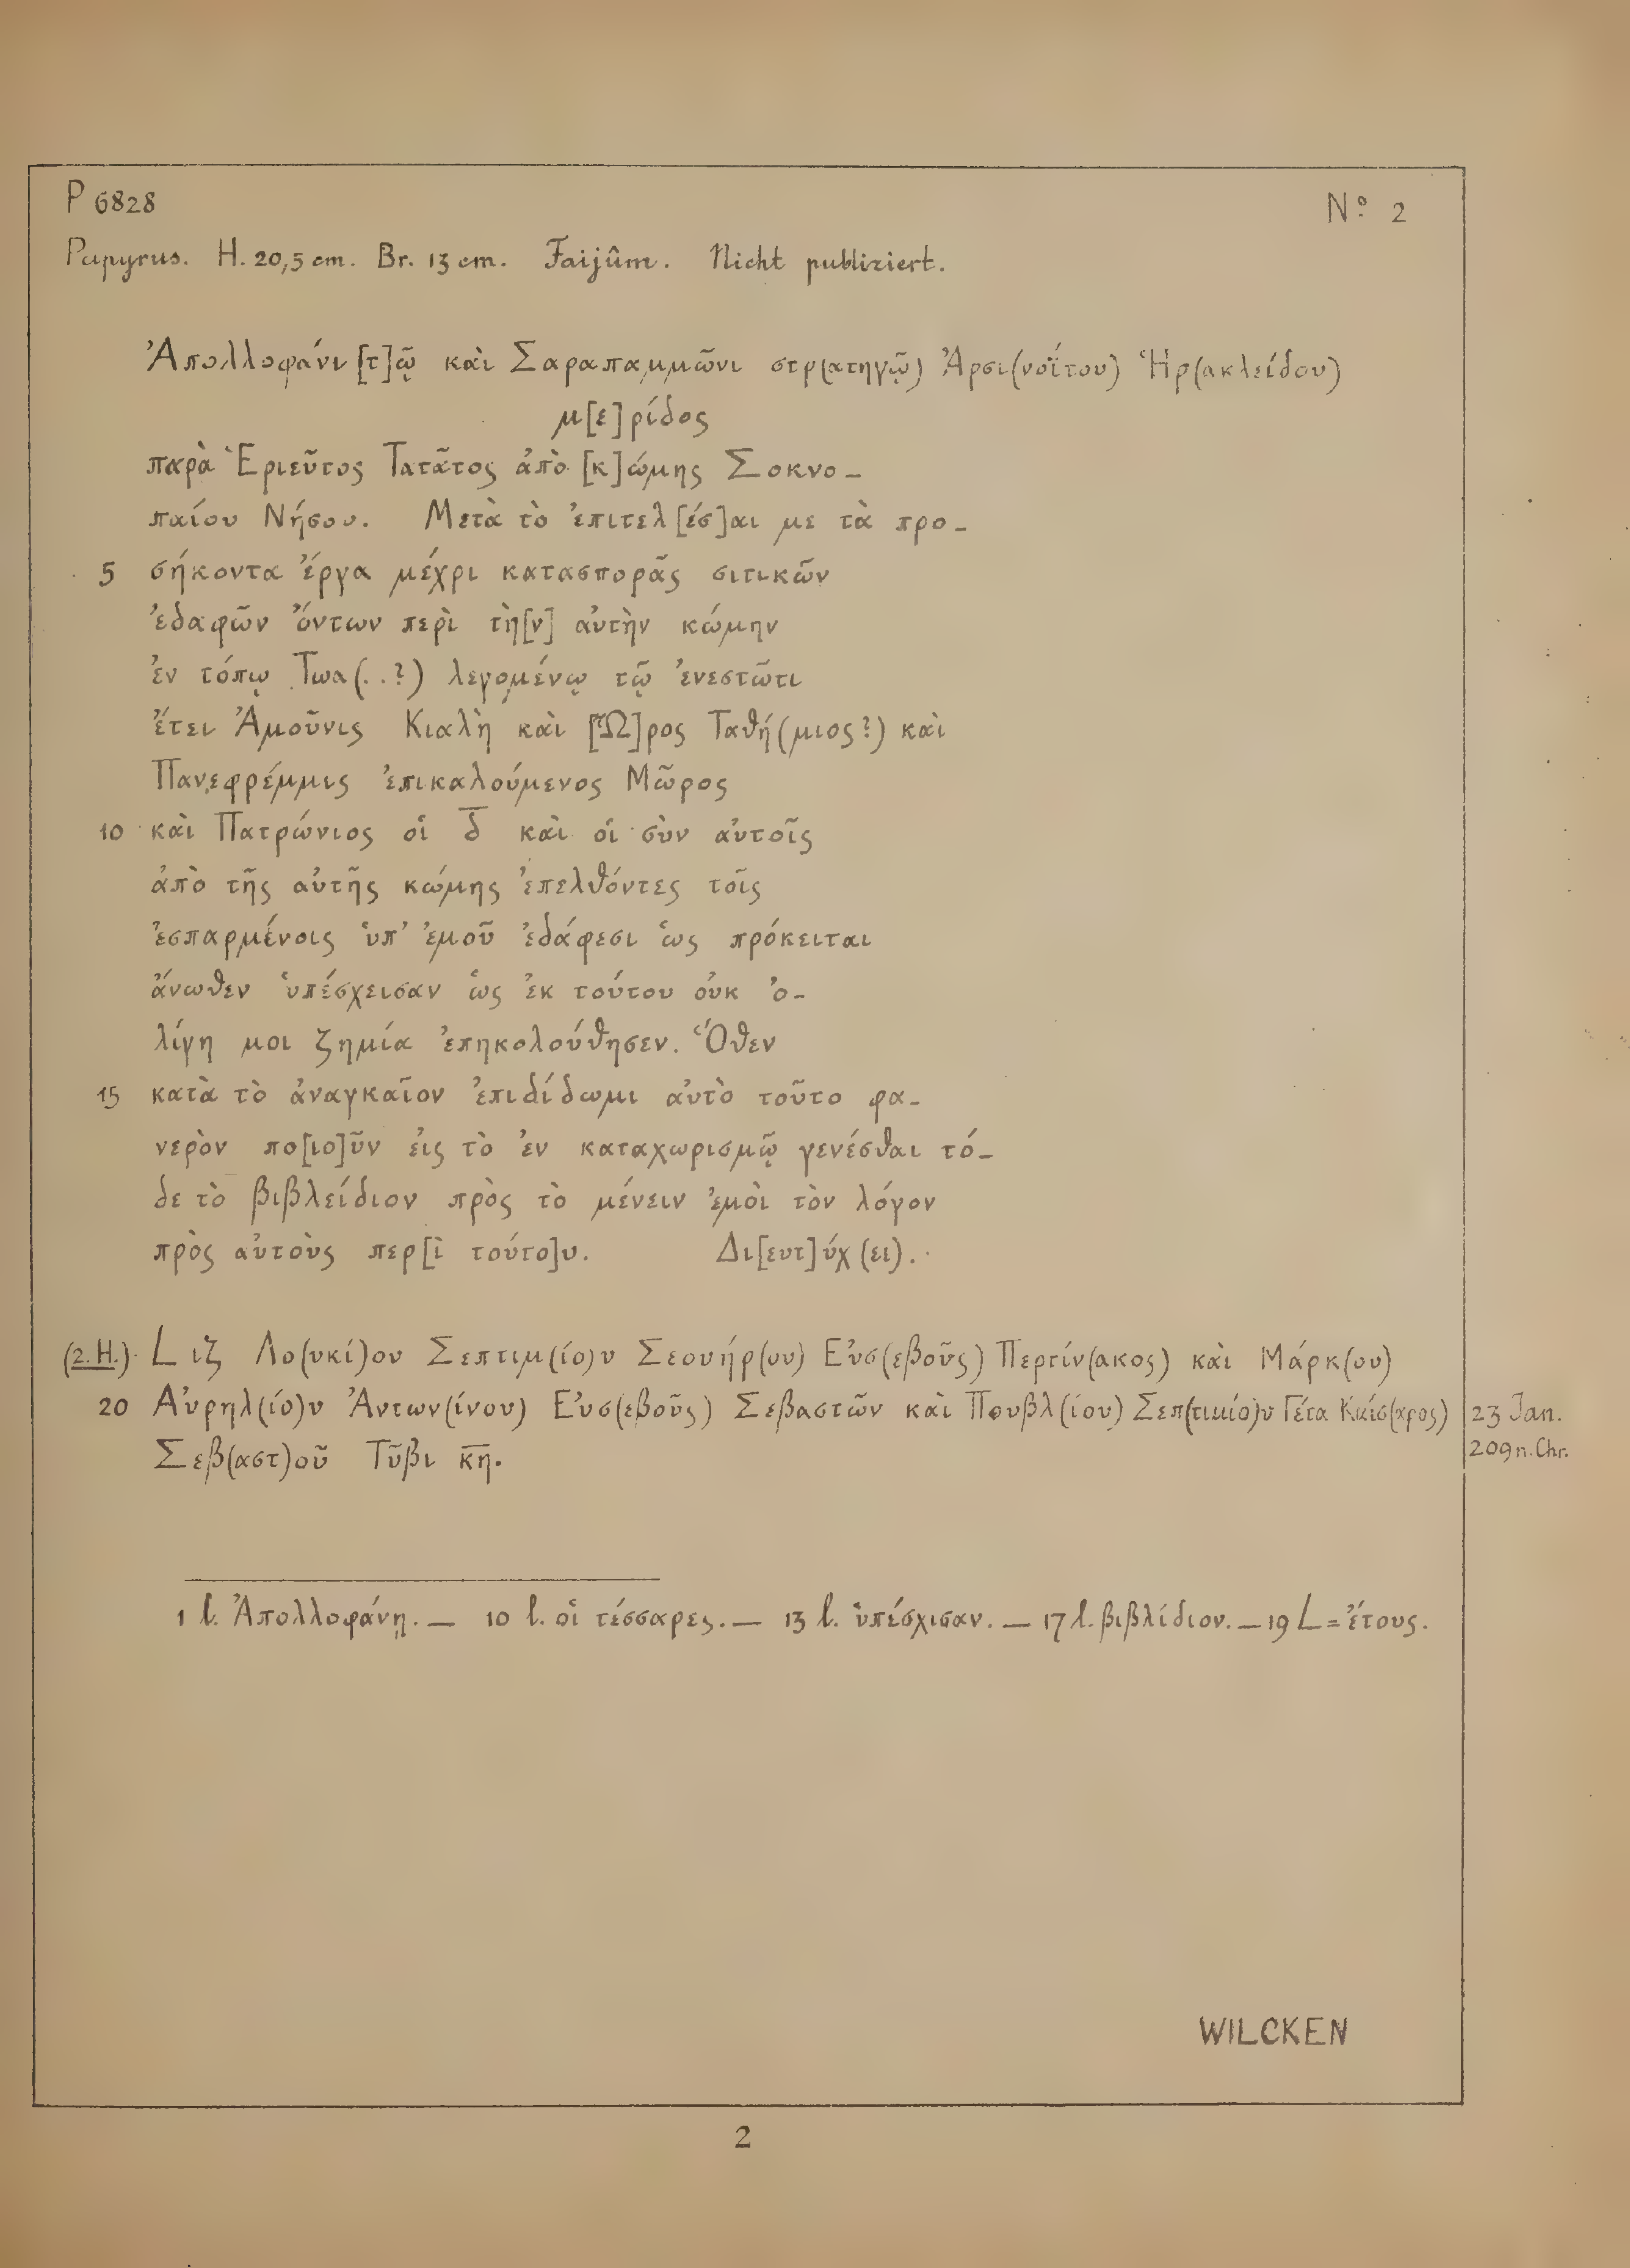 P 6828 Nº 2
Papyrus. H. 20,5 cm. Br. 13 cm. Faijûm. Nicht publiziert.
Ἀπολλοφάνι [τ]ῷ καὶ Σαραπαμμῶνι στρ(ατηγῷ) Ἀρσι(νοΐτου) Ἡρ(ακλείδου)
μ[ε]ρίδος
παρὰ Ἑριεῦτος Τατᾶτος ἀπὸ [κ]ώμης Σοκνο-
παίου Νήσου. Μετὰ τὸ ἐπιτελ[έσ]αι με τὰ προ-
5 σήκοντα ἔργα μέχρι κατασπορᾶς σιτικῶν
ἐδαφῶν ὄντων περὶ τὴ[ν] αὐτὴν κώμην
ἐν τόπῳ Τωα(..?) λεγομένῳ τῷ ἐνεστῶτι
ἔτει Ἀμοῦνις Κιαλὴ καὶ [Ὧ]ρος Ταθή(μιος?) καὶ
Πανεφρέμμις ἐπικαλούμενος Μῶρος
10 καὶ Πατρώνιος οἱ δ̅ καὶ οἱ σὺν αὐτοῖς
ἀπὸ τῆς αὐτῆς κώμης ἐπελθόντες τοῖς
ἐσπαρμένοις ὑπ' ἐμοῦ ἐδάφεσι ὡς πρόκειται
ἄνωθεν ὑπέσχεισαν ὡς ἐκ τούτου οὐκ ὀ-
λίγη μοι ζημία ἐπηκολούθησεν. Ὅθεν
15 κατὰ τὸ ἀναγκαῖον ἐπιδίδωμι αὐτὸ τοῦτο φα-
νερὸν πο[ιο]ῦν εἰς τὸ ἐν καταχωρισμῷ γενέσθαι τό-
δε τὸ βιβλείδιον πρὸς τὸ μένειν ἐμοὶ τὸν λόγον
πρὸς αὐτοὺς περ[ὶ τούτο]υ. Δι[ευτ]ύχ(ει).
(2. H.) L ιζ Λο(υκί)ου Σεπτιμ(ίο)υ Σεουήρ(ου) Εὐσ(εβοῦς) Περτίν(ακος) καὶ Μάρκ(ου)
20 Αὐρηλ(ίο)υ Ἀντων(ίνου) Εὐσ(εβοῦς) Σεβαστῶν καὶ Πουβλ(ίου) Σεπ(τιμίο)υ Γέτα Καίσ(αρος) 23 Jan.
209 n. Chr.
Σεβ(αστ)οῦ Τῦβι κ̅η̅.
1 l. Ἀπολλοφάνῃ. — 10 l. οἱ τέσσαρες. — 13 l. ὑπέσχισαν. — 17 l. βιβλίδιον. — 19 L = ἔτους.
WILCKEN
2